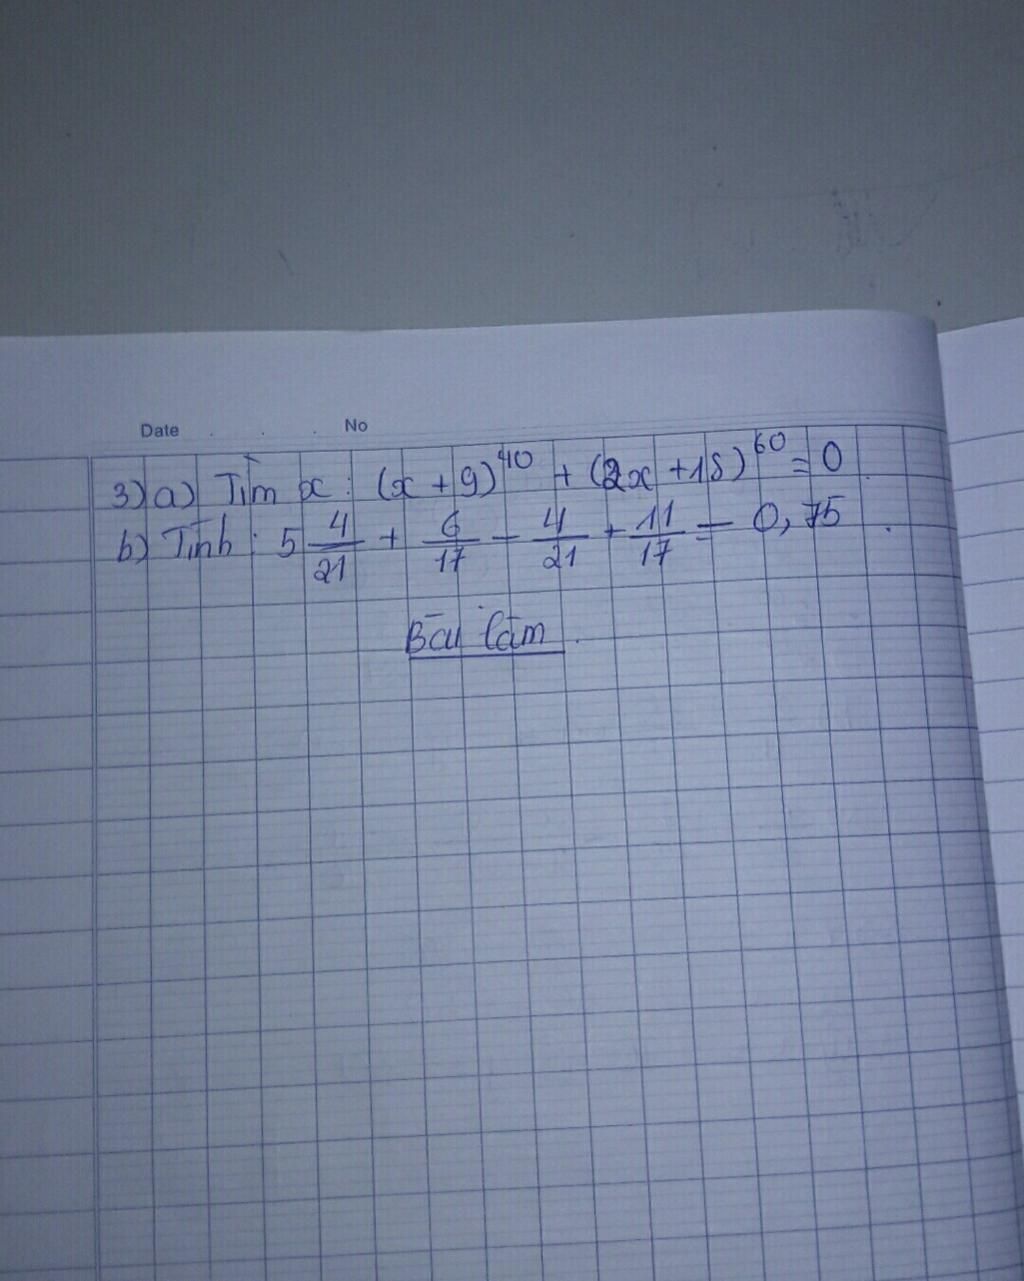 Date . . . No
3) a) Tìm x : (x + 9)^40 + (2x + 18)^60 = 0
b) Tính : 5 4/21 + 6/17 - 4/21 + 11/17 - 0,75
Bài làm